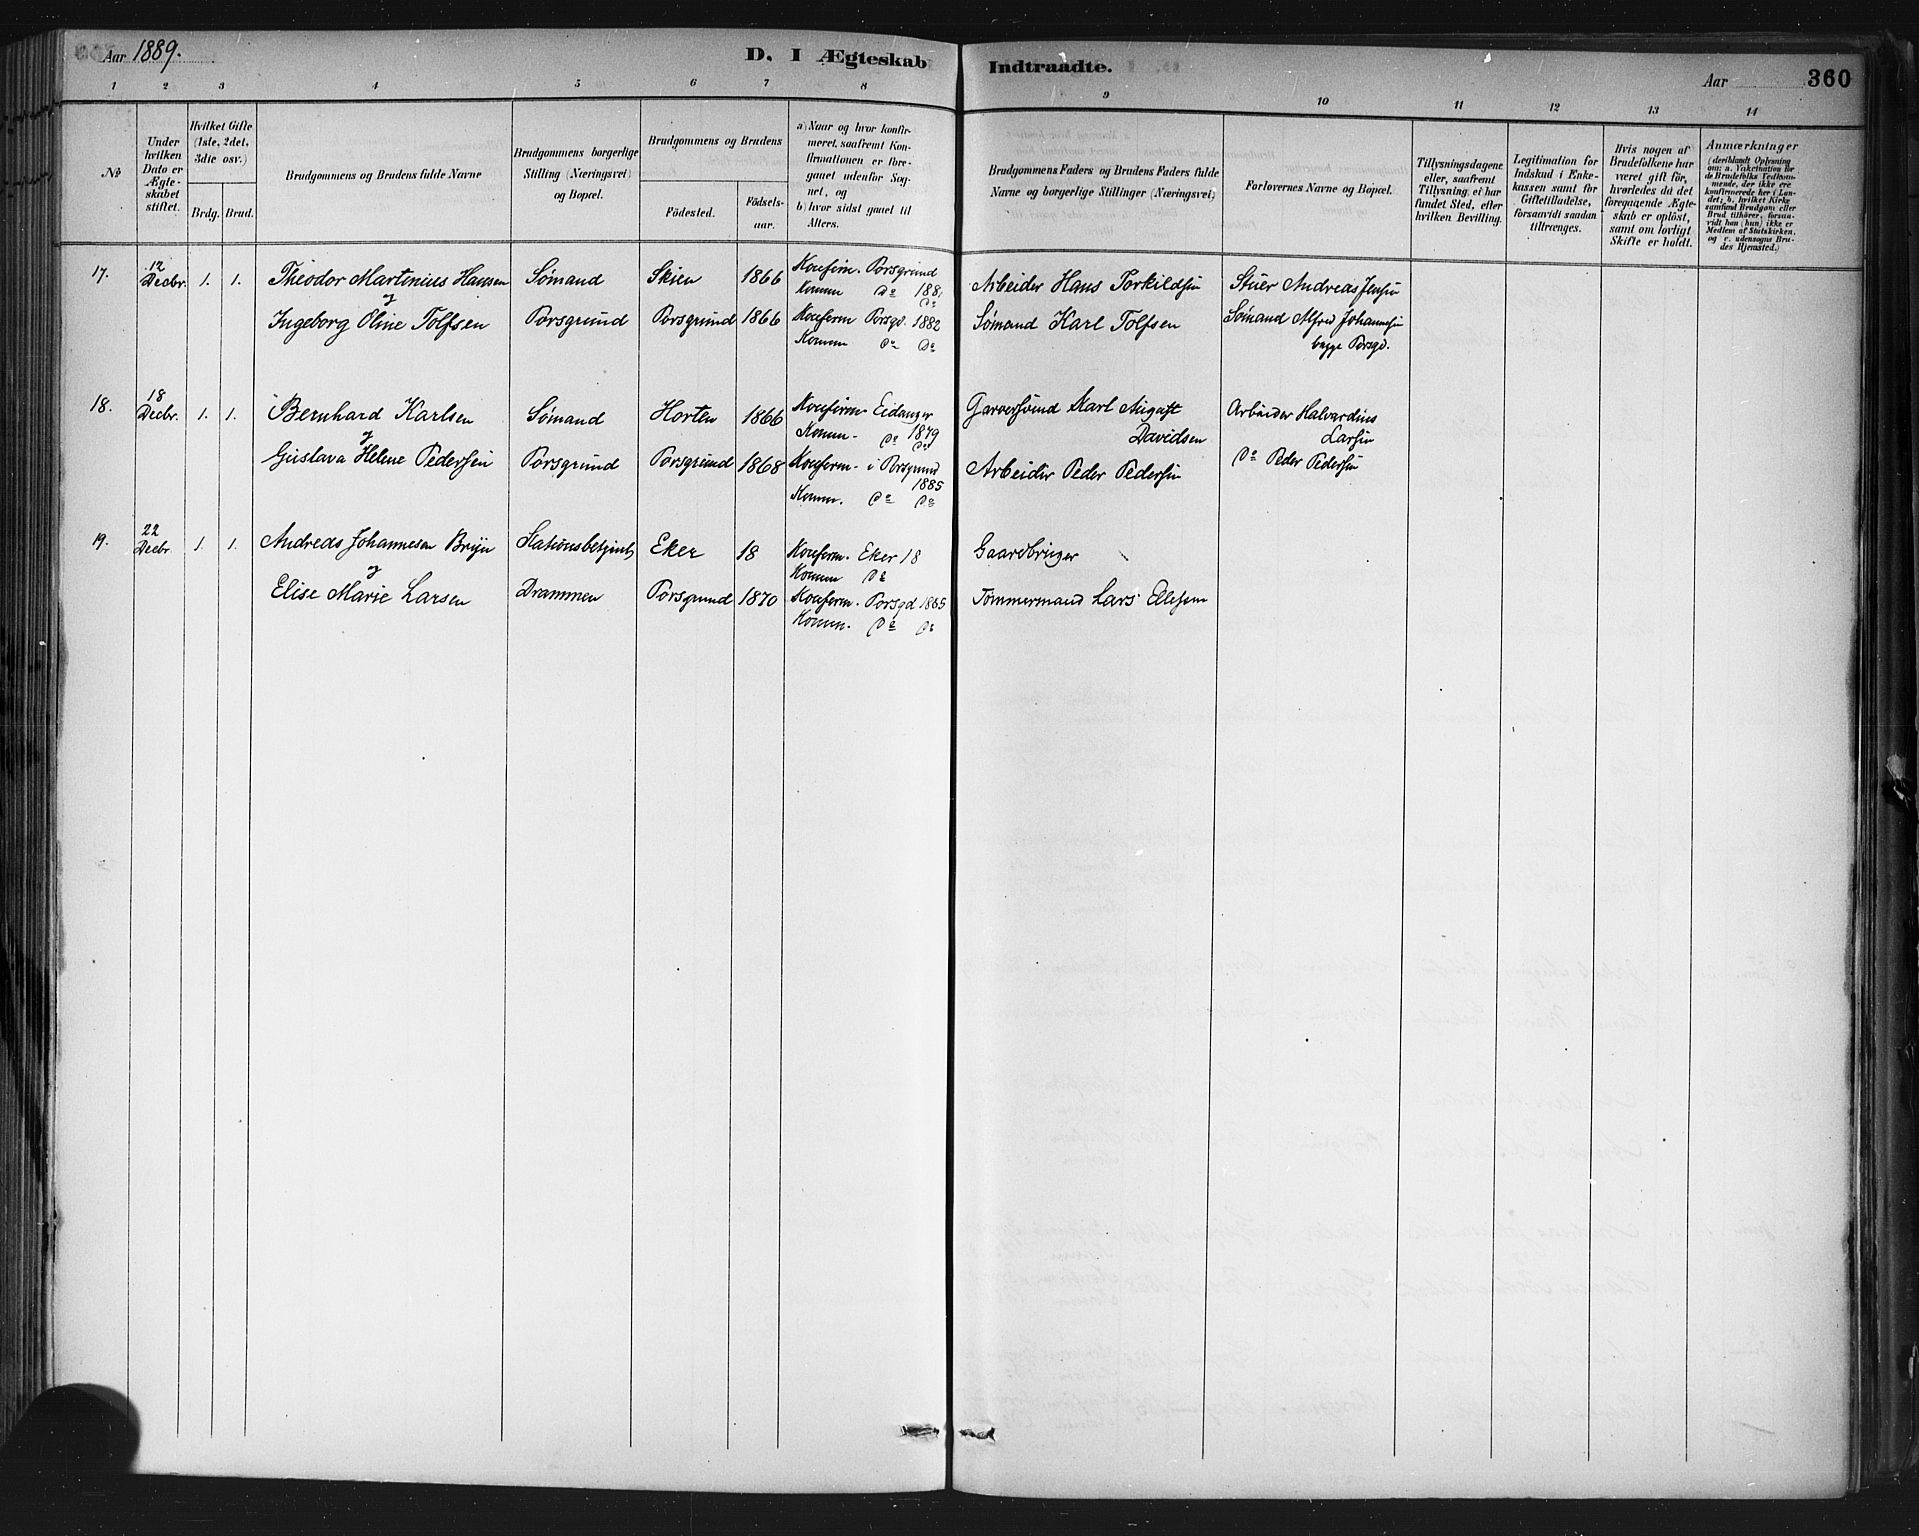 Aar 1889.
D. I Ægteskab Indtraadte.
Aar 360
1 2 3 4 5 6 7 8 9 10 11 12 13 14
No
Under hvilken Dato er Ægteskabet stiftet.
Hvilket Gifte (1ste, 2det, 3die osv.)
Brdg. Brud.
Brudgommens og Brudens fulde Navne
Brudgommens borgerlige Stilling (Næringsvei) og Bopæl.
Brudgommens og Brudens
Födested. Födsels-aar.
a) Naar og hvor konfirmeret, saafremt Konfirmationen er foregaaet udenfor Sognet, og
b) hvor sidst gaaet til Alters.
Brudgommens Faders og Brudens Faders fulde Navne og borgerlige Stillinger (Næringsvei)
Forlovernes Navne og Bopæl.
Tillysningsdagene eller, saafremt Tillysning ei har fundet Sted, efter hvilken Bevilling.
Legitimation for Indskud i Enkekassen samt for Giftetilladelse, forsaavidt saadan tiltrænges.
Hvis nogen af Brudefolkene har været gift för, hvorledes da det foregaaende Ægteskab er oplöst, samt om lovligt Skifte er holdt.
Anmærkninger (deriblandt Oplysning om: a. Vakcination for de Brudefolks Vedkommende, der ikke ere konfirmerede her i Landet; b. hvilket Kirkesamfund Brudgom eller Brud tilhörer, forsaavidt han (hun) ikke er Medlem af Statskirken, og c. udensogns Brudes Hjemsted.)
17. 12 Decbr. 1. 1. Theodor Martinius Hansen Sømand Skien 1866 Konfirm. Porsgrund Arbeider Hans Torkildsen Stuer Andreas Jensen
& Komm Do 188 Do
Ingeborg Oline Tolfsen Porsgrund Porsgrund 1866 Konferm Porsgd. 1882 Sømand Karl Tolfsen Sømand Alfred Johannesen
Komm Do Do begge Porsgd.
18. 18 Decbr. 1. 1. Bernhard Karlsen Sømand Horten 1866 Konfirm. Eidanger Garversvend Karl August Arbeider Halvardius
& Komm. Do 1879 Do Davidsen Larsen
Gustava Helene Pedersen Porsgrund Porsgrund 1868 Konferm. i Porsgrund Arbeider Peder Pedersen Do Peder Pedersen
1885
Komm. Do Do
19. 22 Decbr 1. 1. Andreas Johannesen Stationsbetjent Eker 18 Konferm. Eker 18 Gaardbruger
& Komm Do
Elise Marie Larsen Drammen Porsgrund 1870 Konferm. Porsgd 1865 Tømmermand Lars
Komm. Do Do